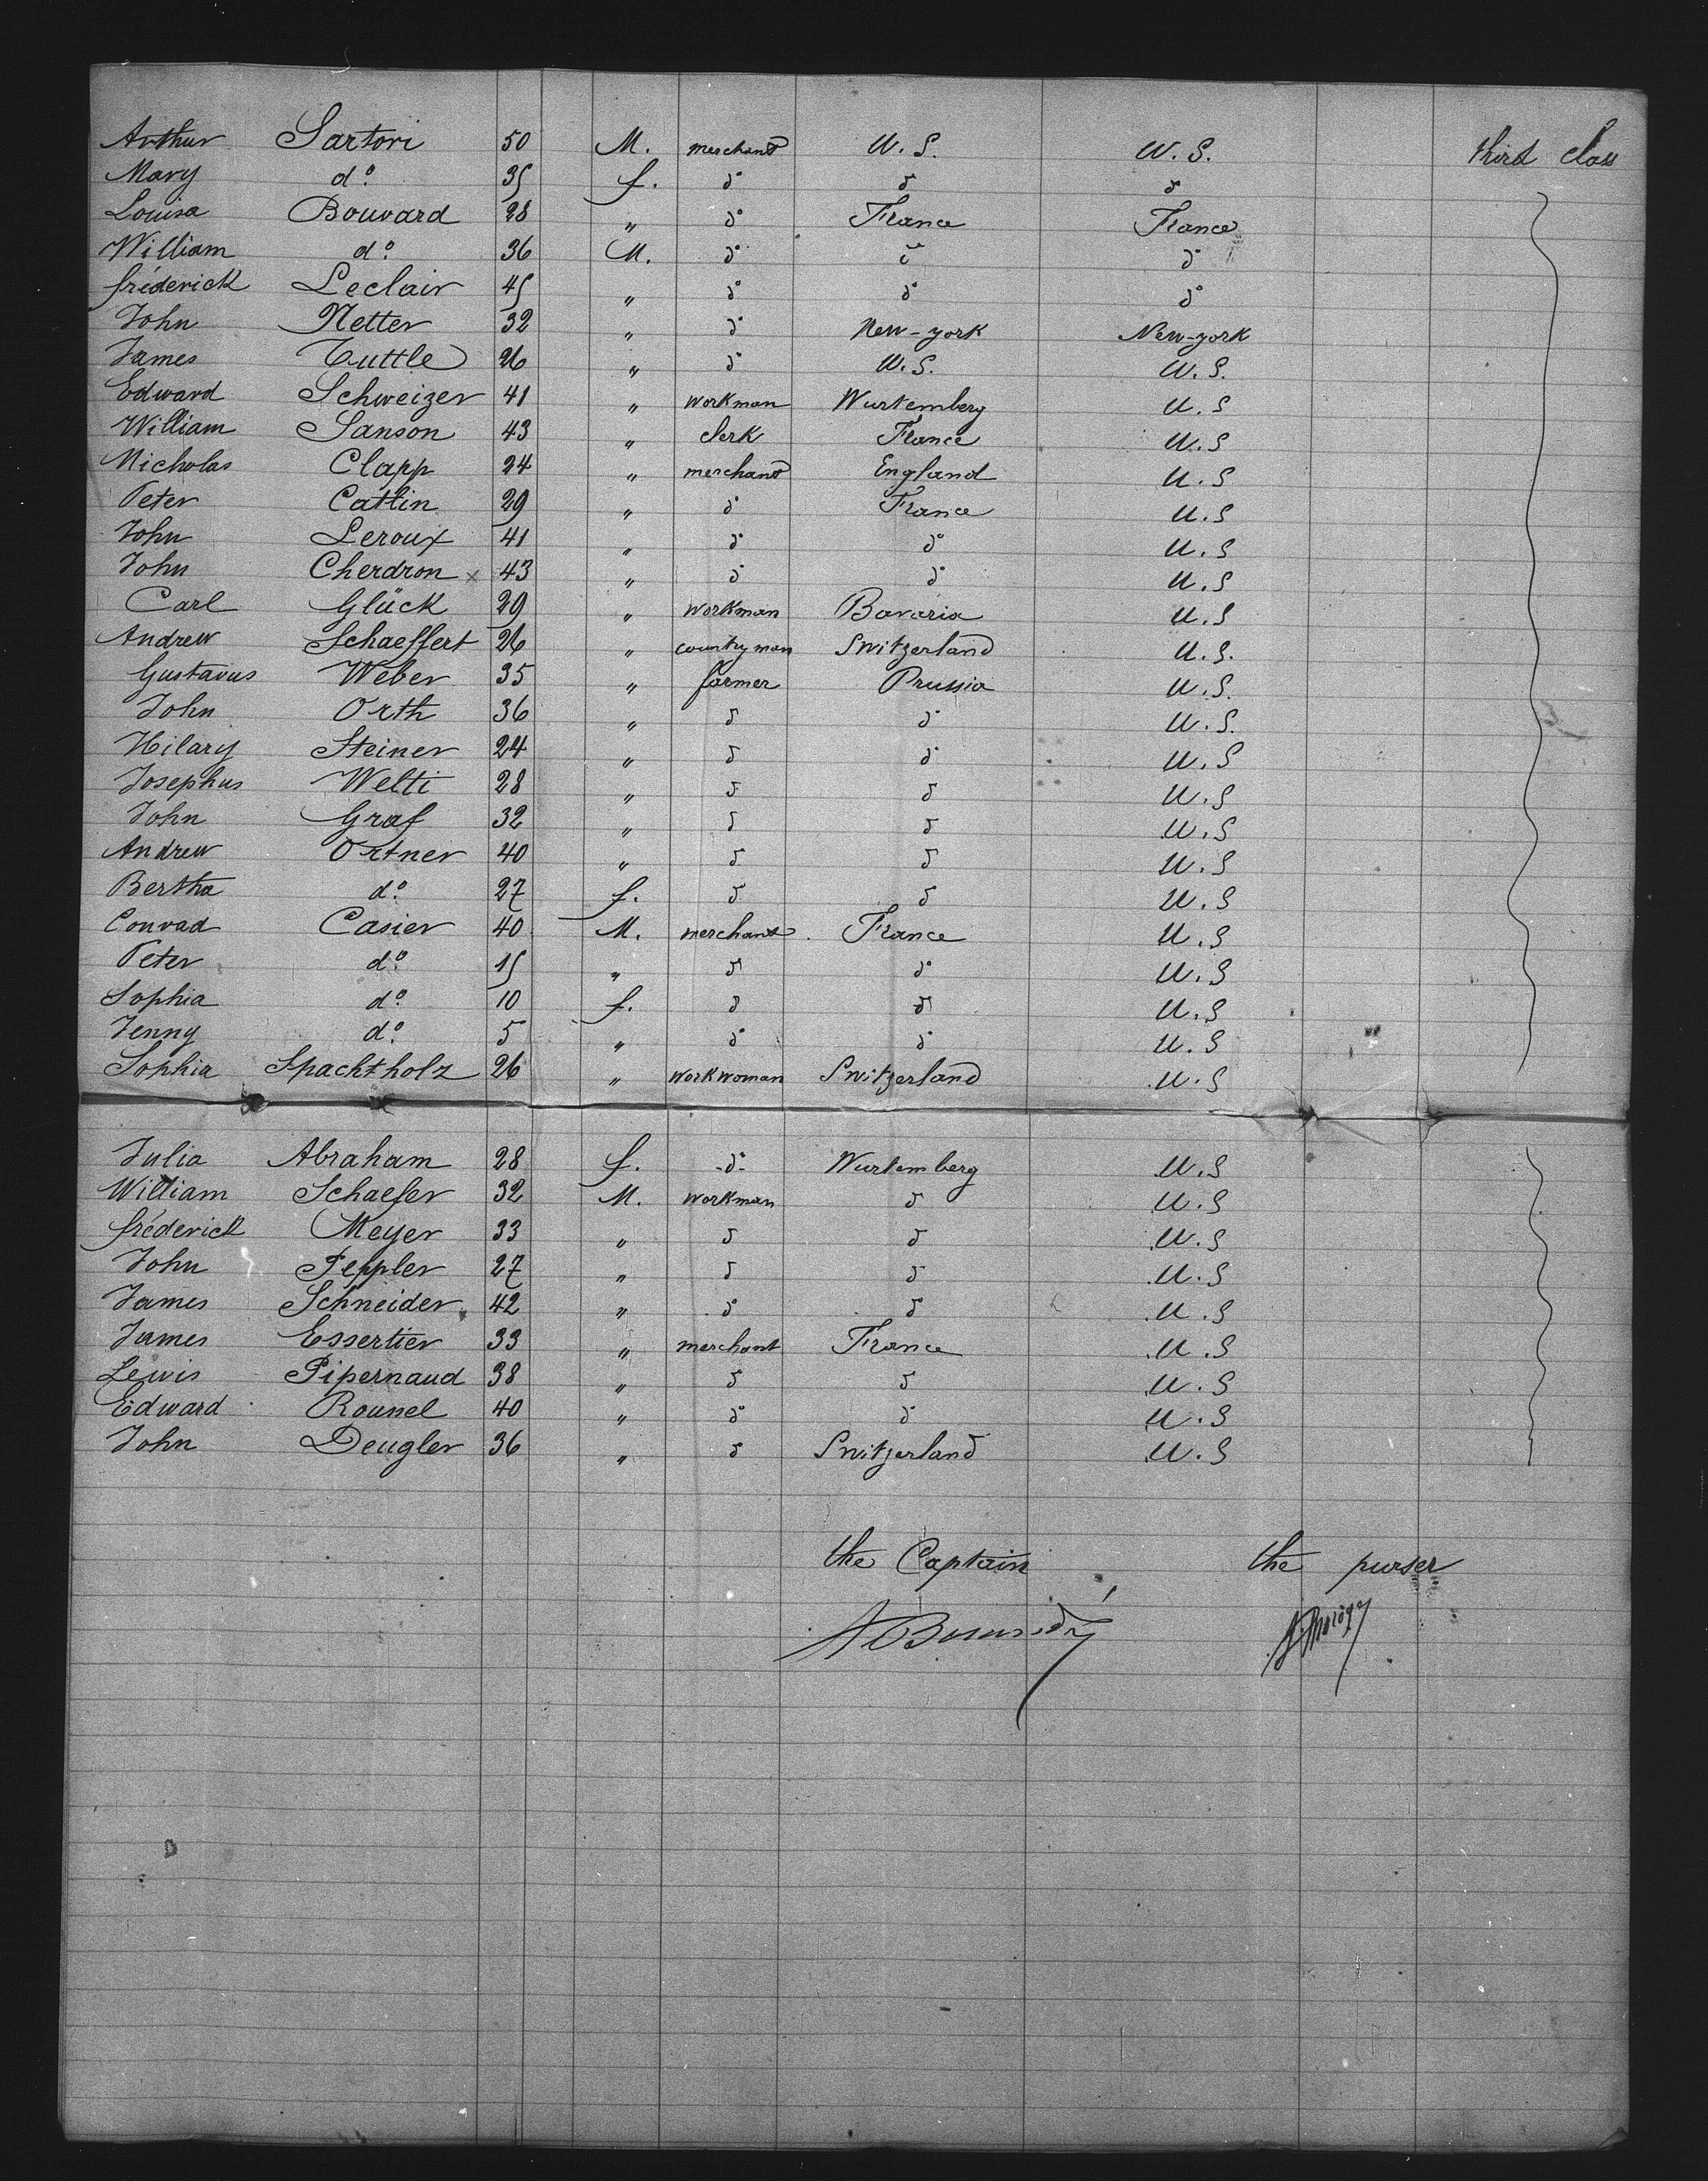 Arthur Sartori 50 M. merchant U.S. U.S. third class
Mary do. 35 f. do do do
Louisa Bouvard 28 " do France France
William do. 36 M. do do do
fréderick Leclair 45 " do do do
John Netter 32 " do New-york New-york
James Tuttle 26 " do U.S. U.S.
Edward Schweizer 41 " workman Wurtemberg U.S
William Sanson 43 " clerk France U.S
Nicholas Clapp 24 " merchant England U.S
Peter Catlin 29 " do France U.S
John Leroux 41 " do do U.S
John Cherdron x 43 " do do U.S
Carl Glück 29 " workman Bavaria U.S
Andrew Schaeffert 26 " country man Switzerland U.S.
Gustavus Weber 35 " farmer Prussia U.S.
John Orth 36 " do do U.S.
Hilary Steiner 24 " do do U.S
Josephus Welti 28 " do do U.S
John Graf 32 " do do U.S
Andrew Ortner 40 " do do U.S
Bertha do. 27 f. do do U.S
Conrad Casier 40 M. merchant France U.S
Peter do. 15 " do do U.S
Sophia do. 10 f. do do U.S
Jenny do. 5 " do do U.S
Sophia Spachtholz 26 " workwoman Switzerland U.S
Julia Abraham 28 f. -do- Wurtemberg U.S
William Schaefer 32 M. workman do U.S
fréderick Meyer 33 " do do U.S
John Peppler 27 " do do U.S
James Schneider 42 " do do U.S
James Essertier 33 " merchant France U.S
Lewis Pipernaud 38 " do do U.S
Edward Roussel 40 " do do U.S
John Deugler 36 " do Switzerland U.S
the Captain the purser